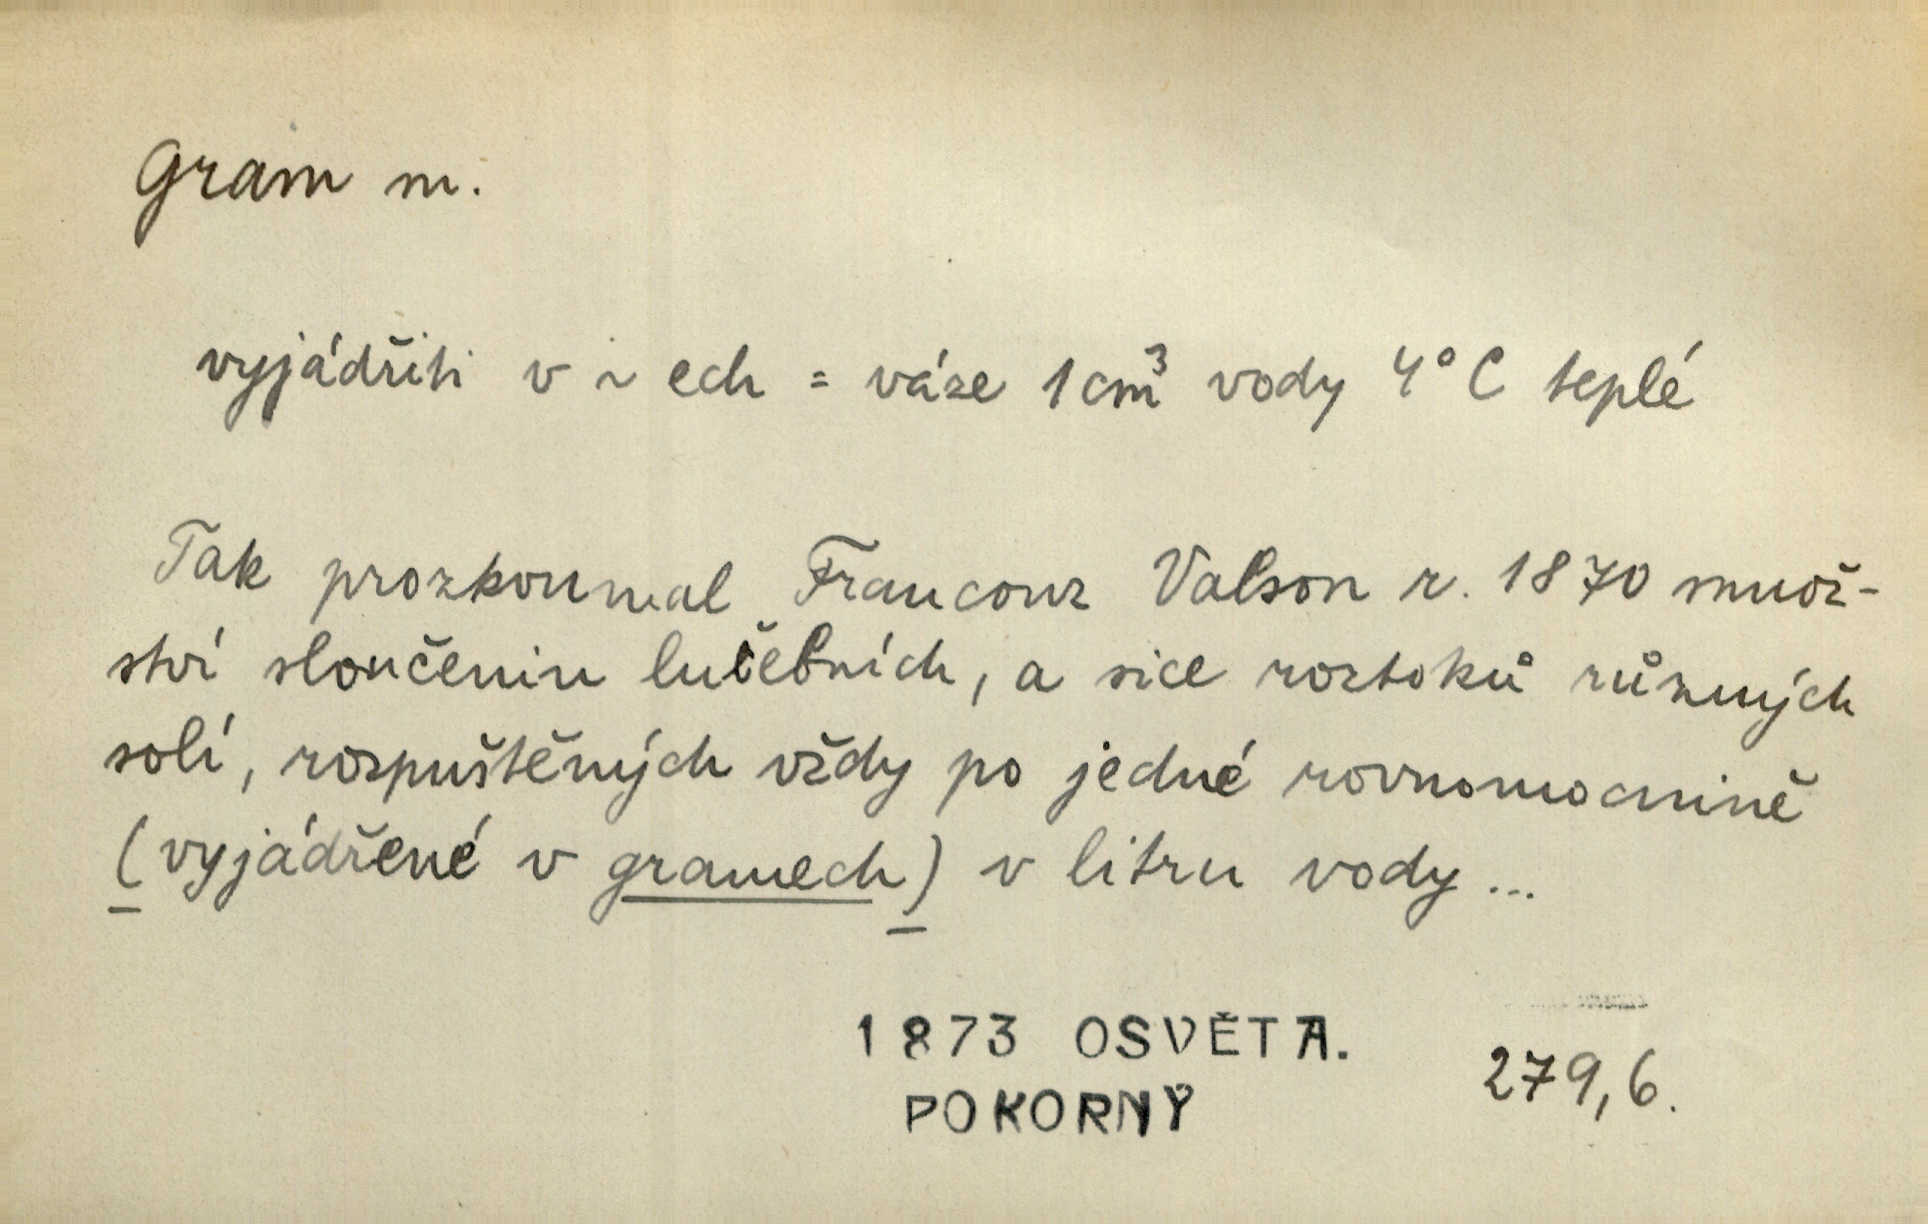 Gram m.
vyjádřiti v ~ ech = váze 1 cm³ vody 4° C teplé
Tak prozkoumal Francouz Valson r. 1870 množ-
ství sloučenin lučebních, a sice roztoků různých
solí, rozpuštěných vždy po jedné rovnomocnině
(vyjádřené v gramech) v litru vody ...
1873 OSVĚTA.
POKORNÝ
279,6.